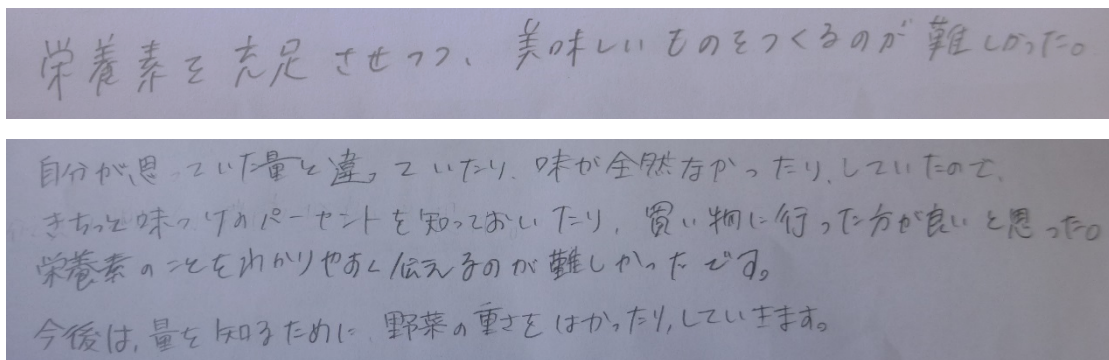 栄養素を充足させつつ、美味しいものをつくるのが難しかった。
自分が思っていた量と違っていたり、味が全然なかったり、していたので、
きちっと味つけのパーセントを知っておいたり、買い物に行った方が良いと思った。
栄養素のことをわかりやすく伝えるのが難しかったです。
今後は、量を知るために、野菜の重さをはかったり、していきます。